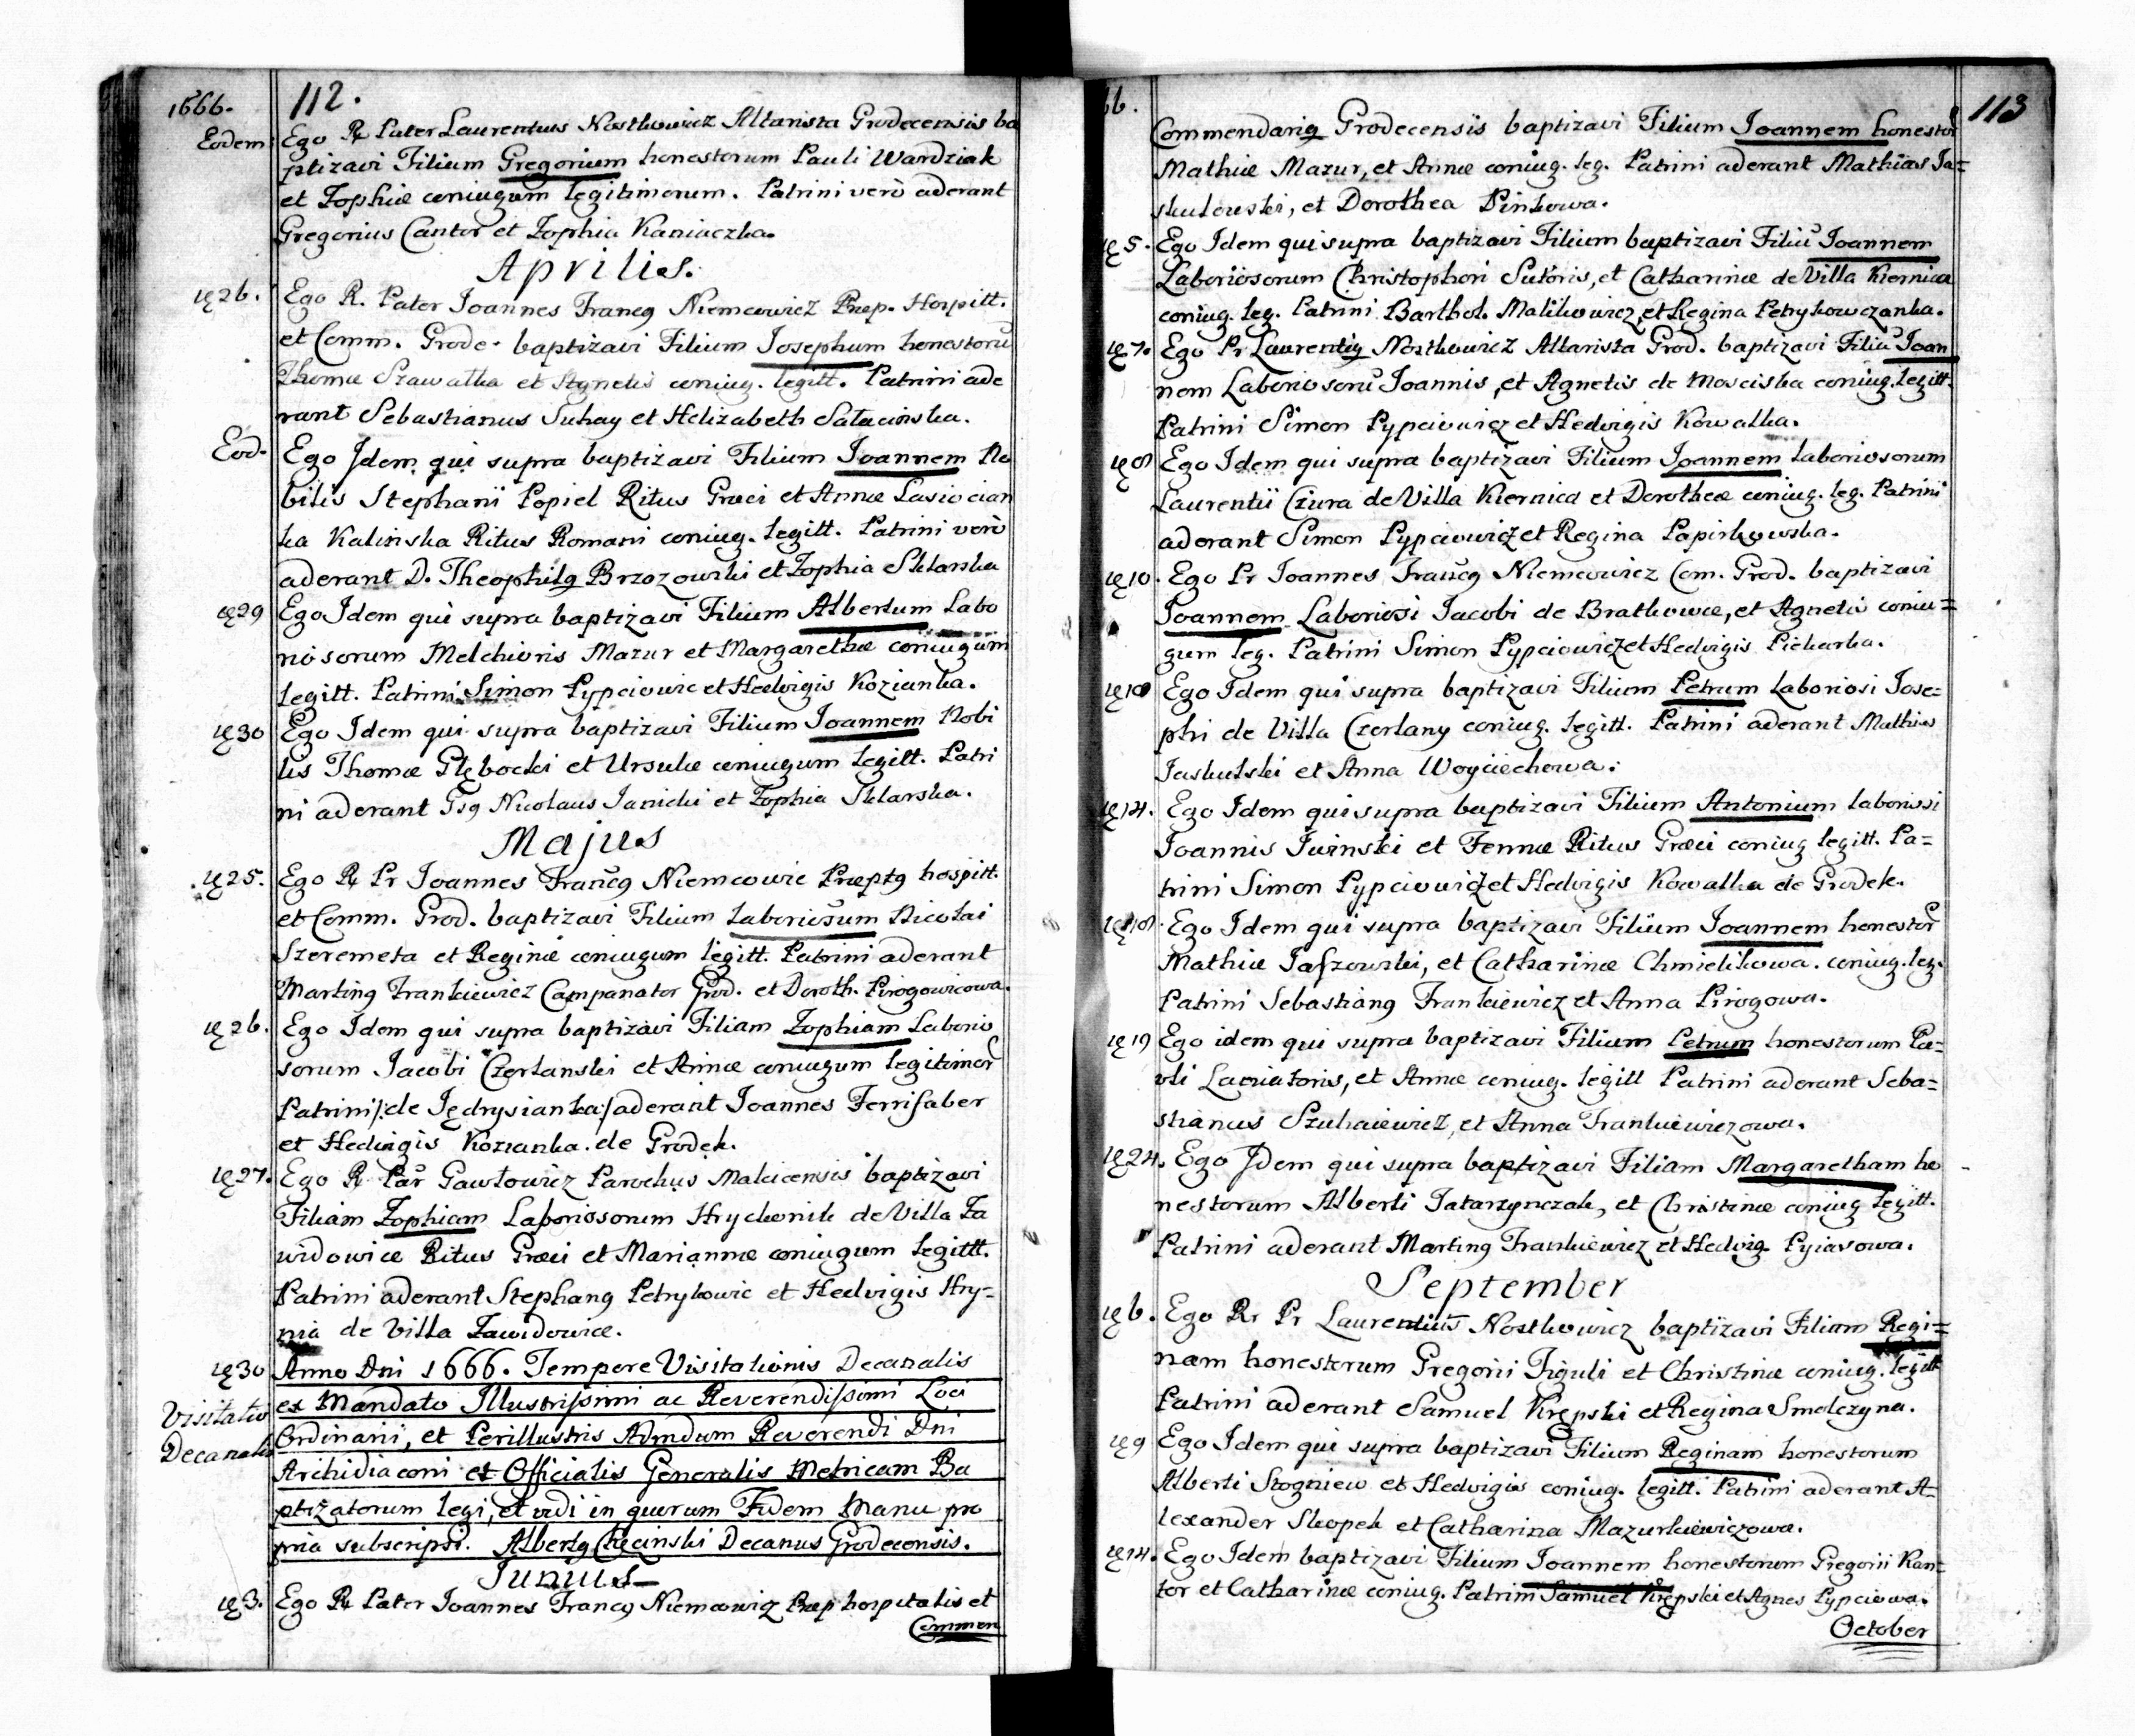 1666.
112.
Eodem Ego R Pater Laurentius Nostkowicz Altarista Grodecensis ba
ptizavi Filium Gregorium honestorum Pauli Wardziak
et Zophiæ coniugum legitimorum. Patrini verò aderant
Gregorius Cantor et Zophia Kaniaczka.
Aprilis.
26. Ego R. Pater Joannes Franc9 Niemcowicz Præp. Hospitt.
et Comm. Grode. baptizavi Filium Josephum honestorũ
Thomæ Szawatka et Agnetis coniug. legitt. Patrini ade
rant Sebastianus Suhay et Helizabeth
Eod. Ego Idem qui supra baptizavi Filium Joannem No
bilis Stephanii Popiel Ritus Græci et Annæ Lasiocian
ka Kalinska Ritus Romani coniug. legitt. Patrini verò
aderant D. Theophil9 Brzozowski et Zophia Sklarska
29 Ego Idem qui supra baptizavi Filium Albertum Labo
riosorum Melchioris Mazur et Margarethæ coniugum
legitt. Patrini Simon Pypciowic et Hedvigis Kozianka.
30 Ego Idem qui supra baptizavi Filium Joannem Nobi
lis Thomæ Głębocki et Ursulæ coniugum legitt. Patri
ni aderant Gsg Nicolaus Janicki et Zophia Sklarska.
Majus
25. Ego R Pr Joannes Franc9 Niemcowic Præpt9 hospitt.
et Comm. Grod. baptizavi Filium Laboriosum Nicolai
Szeremeta et Reginæ coniugum legitt. Patrini aderant
Martin9 Frankiewicz Campanator Grod. et Doroth. Pirogowicowa.
26. Ego Idem qui supra baptizavi Filiam Zophiam Laborio
sorum Jacobi Czerlanski et Annæ coniugum legitimor
Patrini /:de Jędrysianka:/ aderant Joannes Ferrifaber
et Hedvigis Kozianka de Grodek.
27. Ego R Par Gawłowicz Parochus Malcicensis baptizavi
Filiam Zophiam Laboriosorum Hryckonik de Villa Za
widowice Ritus Græci et Mariannæ coniugum legittt.
Patrini aderant Stephan9 Petrykowic et Hedvigis Hry=
nia de Villa Zawidowice.
30 Anno Dni 1666. Tempore Visitationis Decanalis
Visitatio
Decanalis
ex Mandato Illustrissimi ac Reverendissimi Loci
Ordinarii, et Perillustris Admdum Reverendi Dni
Archidiaconi et Officialis Generalis Metricam Ba
ptizatorum legi, et vidi in quorum Fidem Manu pro
pria subscripsi. Albert9 Chęcinski Decanus Grodecensis.
Junius
3. Ego R Pater Joannes Franc9 Niemcowicz Præp hospitalis et
Commen
66.
113
Commendari9 Grodecensis baptizavi Filium Joannem honestor
Mathiæ Mazur, et Annæ coniug. leg. Patrini aderant Mathias Ja=
skulowski, et Dorothea Pinkowa.
5. Ego Idem qui supra baptizavi Filium baptizavi Filiũ Joannem
Laboriosorum Christophori Sutoris, et Catharinæ de Villa Kiernica
coniug. leg. Patrini Barthol. Malikowicz, et Regina Petrykowczanka.
7. Ego Pr Laurenti9 Nostkowicz Altarista Grod. baptizavi Filiũ Joan
nem Laboriosorũ Joannis, et Agnetis de Mosciska coniug. legitt.
Patrini Simon Pypciowicz et Hedvigis Kowalka.
8 Ego Idem qui supra baptizavi Filium Joannem laboriosorum
Laurentii Czura de Villa Kiernica et Dorotheæ coniug. leg. Patrini
aderant Simon Pypciowicz et Regina Papirkowska.
10. Ego Pr Joannes Franc9 Niemcowicz Com. Grod. baptizavi
Joannem Laboriosi Jacobi de Bratkowce, et Agnetis coniu=
gum leg. Patrini Simon Pypciowicz et Hedvigis Piekarka.
Ego Idem qui supra baptizavi Filium Petrum Laboriosi Jose=
phi de Villa Czerlany coniug. legitt. Patrini aderant Mathias
Jaskulski et Anna Woyciechowa.
14. Ego Idem qui supra baptizavi Filium Antonium laboriosi
Joannis Juinski et Fennæ Ritus Græci coniug legitt. Pa=
trini Simon Pypciowicz et Hedvigis Kowalka de Grodek.
18. Ego Idem qui supra baptizavi Filium Joannem honestor
Mathiæ Jaszowski, et Catharinæ Chmielikowa. coniug. leg.
Patrini Sebastian9 Frankiewicz et Anna Pirogowa.
19 Ego idem qui supra baptizavi Filium Petrum honestorum Pa=
uli Laniatoris, et Annæ coniug. legitt Patrini aderant Seba=
stianus Szuhaiewicz, et Anna Frankiewiczowa.
24. Ego Idem qui supra baptizavi Filiam Margaretham ho
nestorum Alberti Tatarzynczak, et Christinæ coniug legitt.
Patrini aderant Martin9 Frankiewicz et Hedvig. Pyiavowa.
September
6. Ego Rr Pr Laurentius Nostkowicz baptizavi Filiam Regi=
nam honestorum Gregorii Figuli et Christinæ coniug. legitt
Patrini aderant Samuel Krępski et Regina Smolczyna.
9 Ego Idem qui supra baptizavi Filium Reginam honestorum
Alberti Stogniew et Hedvigis coniug. legitt. Patrini aderant A=
lexander Skopek et Catharina Mazurkiewiczowa.
14. Ego Idem baptizavi Filium Joannem honestorum Gregorii Kan=
tor et Catharinæ coniug. Patrini Samuel Krępski et Agnes Pypciowa.
October